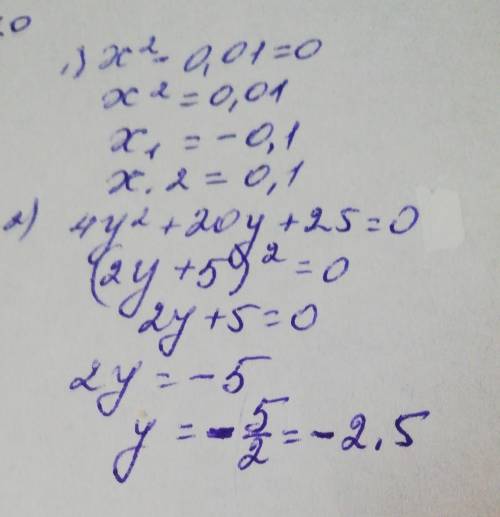 1) x² - 0,01=0
x² = 0,01
x₁ = -0,1
x.2 = 0,1
2) 4y² + 20y + 25 = 0
(2y + 5)² = 0
2y + 5 = 0
2y = -5
y = -5/2 = -2,5